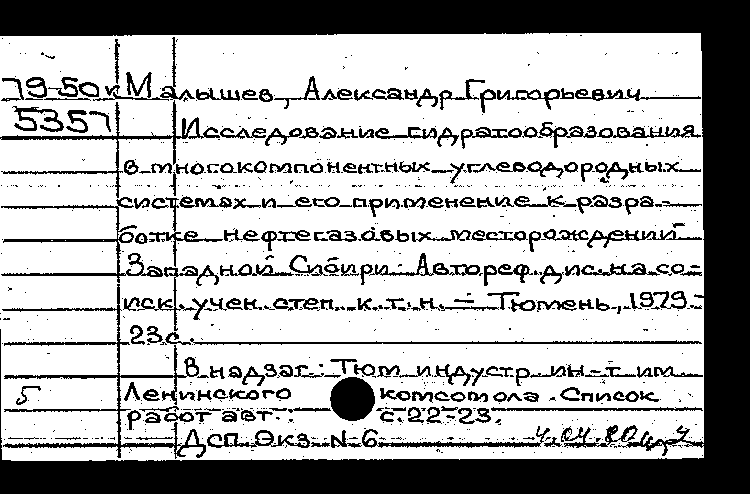 79-50к Малышев, Александр Григорьевич
5357 Исследование гидратообразования
в многокомпонентных углеводородных
системах и его применение к разра-
ботке нефтегазовых месторождений
Западной Сибири: Автореф. дис. на со-
иск. учен. степ. к.т.н. - Тюмень, 1979.-
23с.
В надзаг.: Тюм. индустр. ин-т им.
5 Ленинского комсомола. Список
работ авт.: с.22-23.
Дсп. Экз. N 6 4.04.80